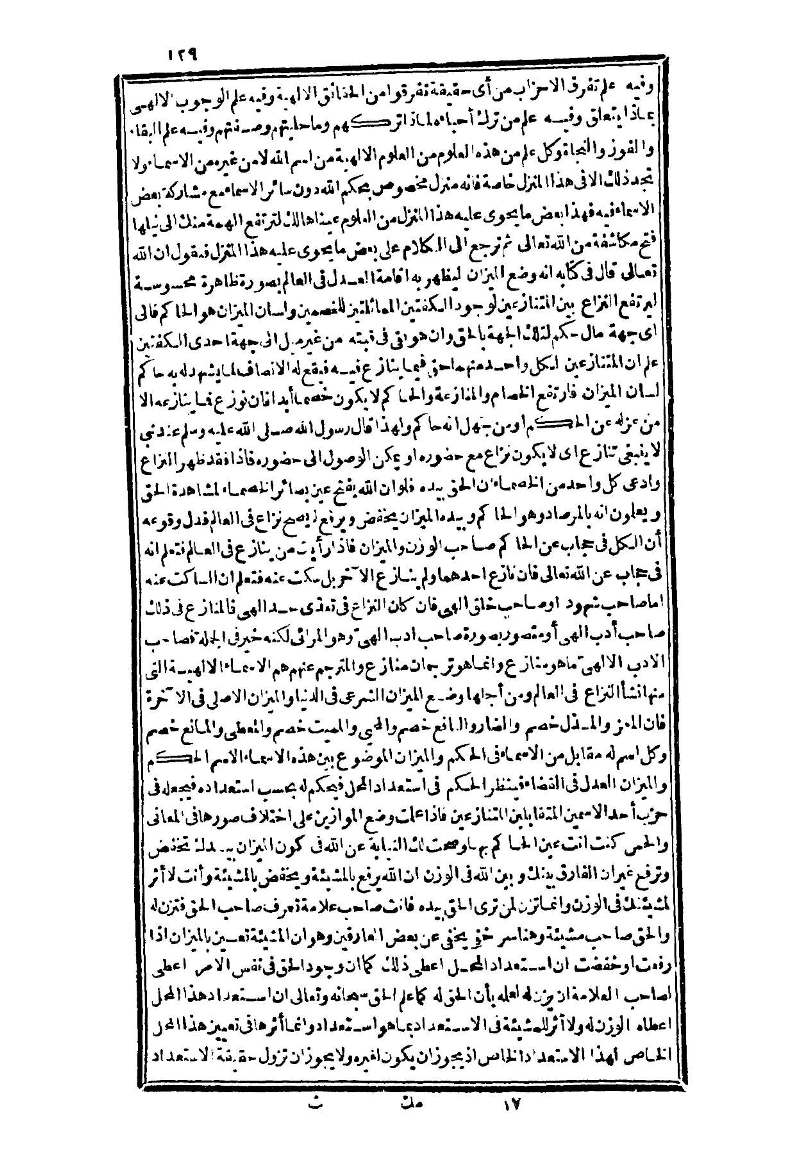 ١٢٩
وفيه علم تفرق الاحزاب من أى حقيقة تفرقوا من الحقائق الالهية وفيه علم الوجوب الالهى
بماذا يتعلق وفيه علم من ترك أحباءه لماذا تركهم وما حليتهم وصفتهم وفيه علم البقاء
والفوز والنجاة وكل علم من هذه العلوم من العلوم الالهية من اسم الله لا من غيره من الاسماء ولا
تجد ذلك الا فى هذا المنزل خاصة فانه منزل مخصوص بحكم الله دون سائر الاسماء مع مشاركة بعض
الاسماء فيه فهذا بعض ما يحوى عليه هذا المنزل من العلوم عيناها لك لترتفع الهمة منك الى نيلها
فتح مكاشفة من الله تعالى ثم نرجع الى الكلام على بعض ما يحوى عليه هذا المنزل فنقول ان الله
تعالى قال فى كتابه انه وضع الميزان ليظهر به اقامة العدل فى العالم بصورة ظاهرة محسوسة
ليرتفع النزاع بين المتنازعين لوجود الكفتين المماثلتين للخصمين ولسان الميزان هو الحاكم فالى
اى جهة مال حكم لتلك الجهة بالحق وان هو ابقى فى قبته من غير ميل الى جهة احدى الكفتين
علم ان المتنازعين لكل واحد منهما حق فيما ينازع فيه فيقع له الانصاف لما يشهد له به حاكم
لسان الميزان فارتفع الخصام والمنازعة والحاكم لا يكون خصما أبدا فان نوزع فما ينازعه الا
من عزله عن الحكم او من جهل انه حاكم ولهذا قال رسول الله صلى الله عليه وسلم عند نبى
لا ينبغى تنازع اى لا يكون نزاع مع حضوره او يمكن الوصول الى حضوره فاذا فقد ظهر النزاع
وادعى كل واحد من الخصماء ان الحق بيده فلو ان الله يفتح عين بصائر الخصماء لمشاهدة الحق
ويعلمون انه بالمرصاد وهو الحاكم وبيده الميزان يخفض ويرفع لم يصح نزاع فى العالم فدل وقوعه
أن الكل فى حجاب عن الحاكم صاحب الوزن والميزان فاذا رأيت من ينازع فى العالم فتعلم انه
فى حجاب عن الله تعالى فان نازع احدهما ولم ينازع الآخر بل سكت عنه فتعلم ان الساكت عنه
اما صاحب شهود او صاحب خلق الهى فان كان النزاع فى تعدى حد الهى فالمنازع فى ذلك
صاحب أدب الهى أو متصور بصورة صاحب ادب الهى وهو المرائى لكنه خير فى الجملة فصاحب
الادب الالهى ما هو منازع وانما هو ترجمان منازع والمترجم عنهم هم الاسماء الالهية التى
منها نشأ النزاع فى العالم ومن أجلها وضع الميزان الشرعى فى الدنيا والميزان الاصلى فى الآخرة
فان المعز والمذل خصم والضار والنافع خصم والمحيى والمميت خصم والمعطى والمانع خصم
وكل اسم له مقابل من الاسماء فى الحكم والميزان الموضوع بين هذه الاسماء الاسم الحكم
والميزان العدل فى القضاء فينظر الحكم فى استعداد المحل فيحكم له بحسب استعداده فيجعله فى
حزب أحد الاسمين المتقابلين المتنازعين فاذا علمت وضع الموازين على اختلاف صورها فى المعانى
والحس كنت انت عين الحاكم بها وصحت لك النيابة عن الله فى كون الميزان بيدك تخفض
وترفع غير ان الفارق بينك وبين الله فى الوزن ان الله يرفع بالمشيئة ويخفض بالمشيئة وأنت لا أثر
لمشيئتك فى الوزن وانما تزن لمن ترى الحق بيده فانت صاحب علامة تعرف صاحب الحق فتزن له
والحق صاحب مشيئة وهنا سر خفى يخفى عن بعض العارفين وهو ان المشيئة تعين بالميزان اذا
رفعت او خفضت ان استعداد المحل اعطى ذلك كما ان وجود الحق فى نفس الامر اعطى
لصاحب العلامة ان يزن له لعلمه بأن الحق له كما علم الحق سبحانه وتعالى ان استعداد هذا المحل
اعطاه الوزن له ولا أثر للمشيئة فى الاستعداد بما هو استعداد وانما أثرها فى تعيين هذا المحل
الخاص لهذا الاستعداد الخاص اذ يجوز ان يكون لغيره ولا يجوز ان تزول حقيقة الاستعداد
١٧ مك ث